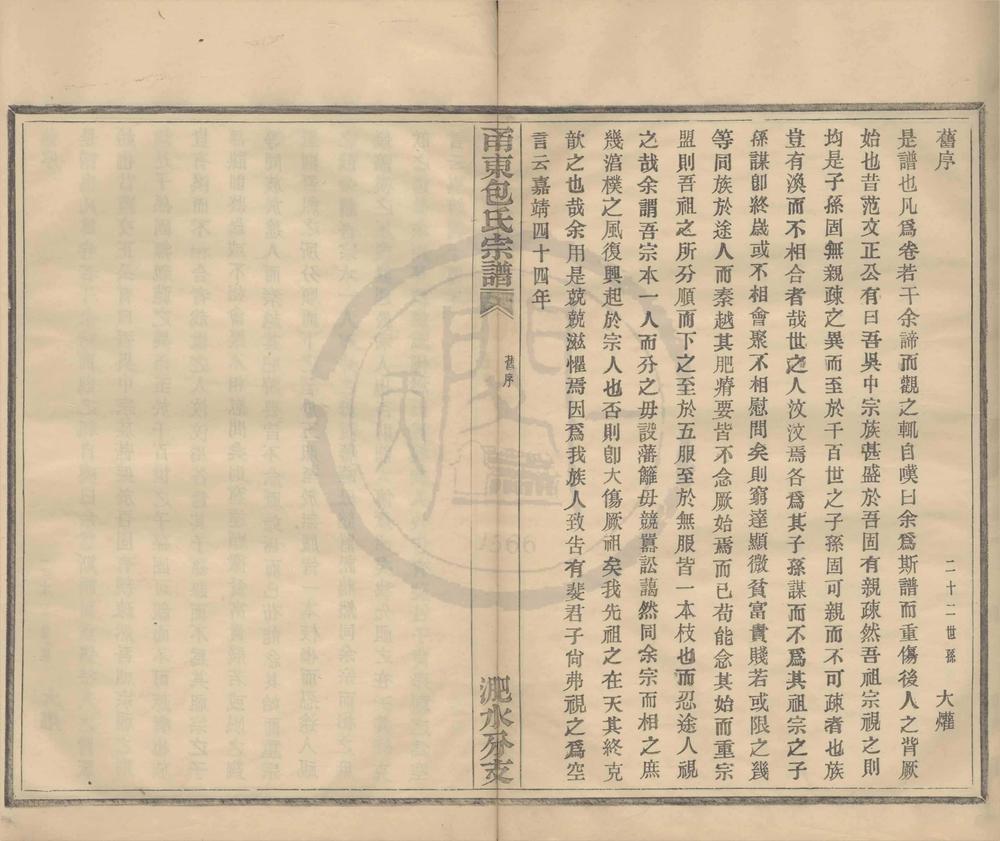 舊序
二十二世孫 大爟
是譜也凡爲卷若干余諦而觀之輒自嘆曰余爲斯譜而重傷後人之背厥
始也昔范文正公有曰吾吳中宗族甚盛於吾固有親疎然吾祖宗視之則
均是子孫固無親疎之異而至於千百世之子孫固可親而不可疎者也族
豈有渙而不相合者哉世之人汶汶焉各爲其子孫謀而不爲其祖宗之子
孫謀卽終歲或不相會聚不相慰問矣則窮達顯微貧富貴賤若或限之幾
等同族於途人而秦越其肥瘠要皆不念厥始焉而已苟能念其始而重宗
盟則吾祖之所分順而下之至於五服至於無服皆一本枝也而忍途人視
之哉余謂吾宗本一人而分之毋設藩籬毋競囂訟藹然同余宗而相之庶
幾㵮樸之風復興起於宗人也否則卽大傷厥祖矣我先祖之在天其終克
歆之也哉余用是兢兢滋懼焉因爲我族人致告有斐君子尙弗視之爲空
言云嘉靖四十四年
甬東包氏宗譜
舊序
淝水分支
1866